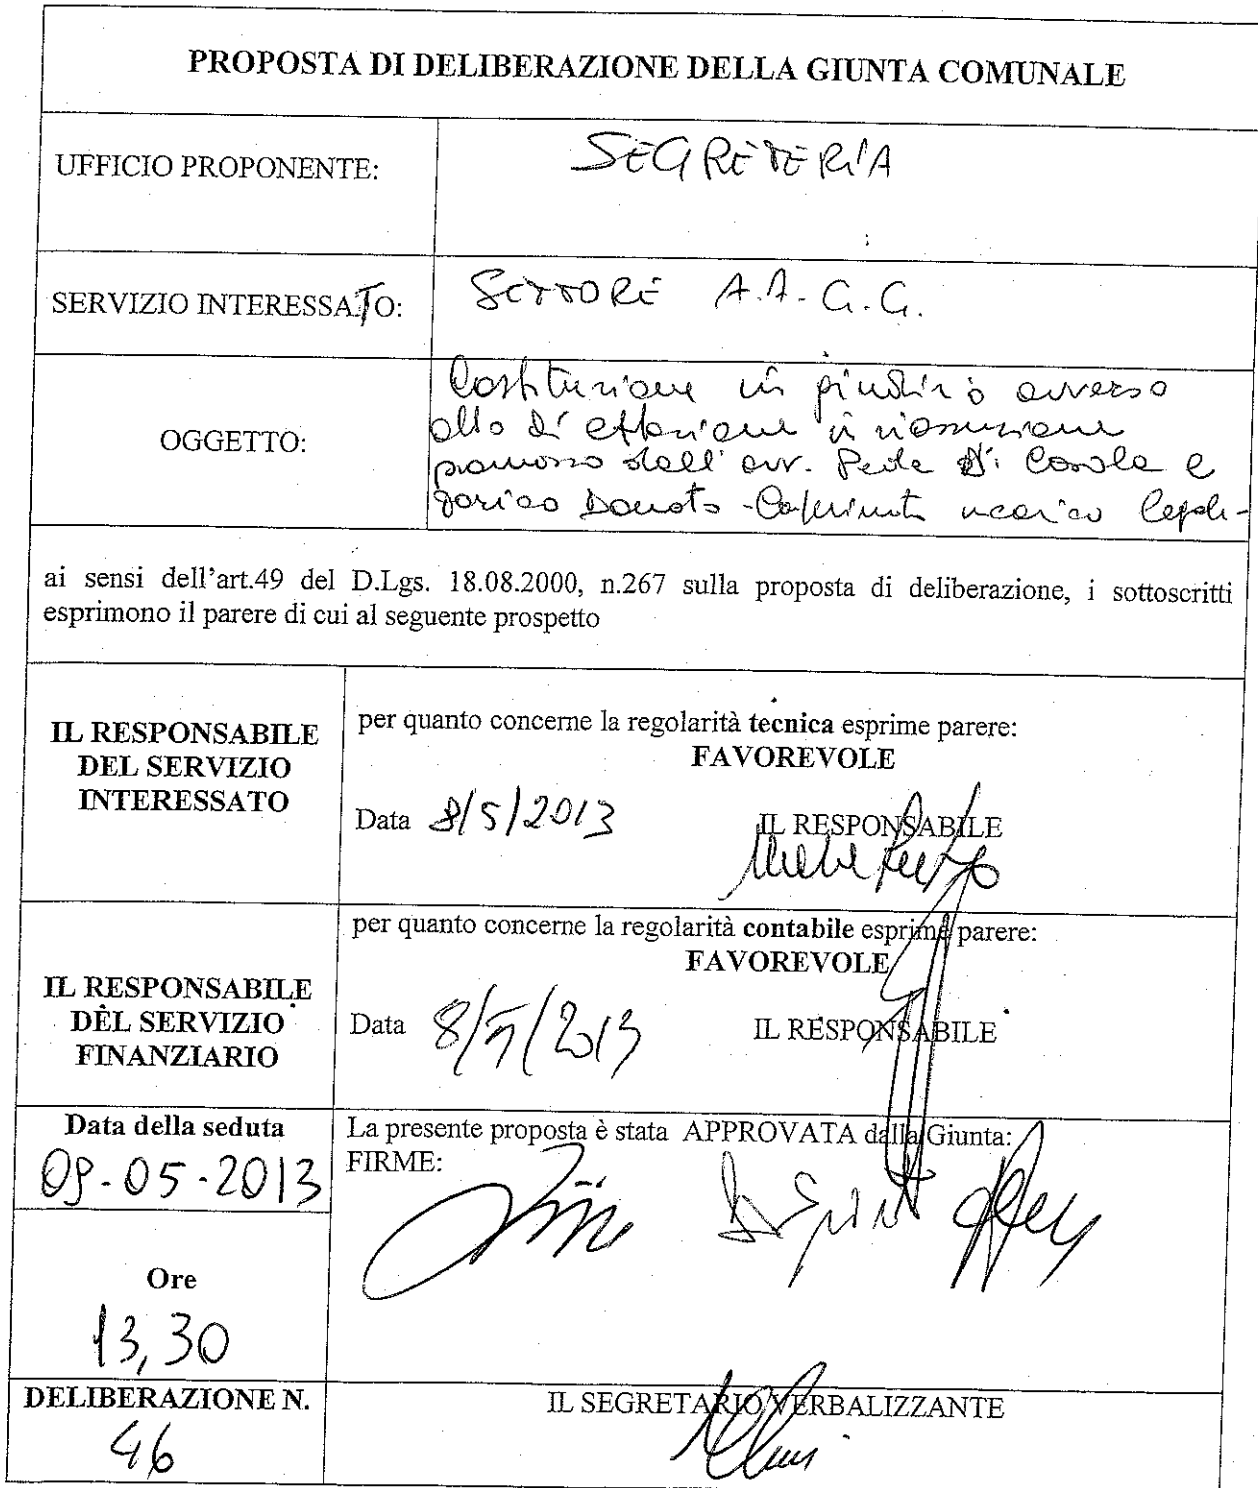 PROPOSTA DI DELIBERAZIONE DELLA GIUNTA COMUNALE
UFFICIO PROPONENTE:
SEGRETERIA
SERVIZIO INTERESSATO:
SETTORE A.A.G.G.
OGGETTO:
Costituzione in giudizio avverso
atto di citazione in riassunzione
promosso dall'avv. Di e
Donato - incarico legale -
ai sensi dell'art.49 del D.Lgs. 18.08.2000, n.267 sulla proposta di deliberazione, i sottoscritti
esprimono il parere di cui al seguente prospetto
IL RESPONSABILE
DEL SERVIZIO
INTERESSATO
per quanto concerne la regolarità tecnica esprime parere:
FAVOREVOLE
Data 8/5/2013
IL RESPONSABILE
IL RESPONSABILE
DEL SERVIZIO
FINANZIARIO
per quanto concerne la regolarità contabile esprime parere:
FAVOREVOLE
Data 8/5/2013
IL RESPONSABILE
Data della seduta
09-05-2013
Ore
13,30
La presente proposta è stata APPROVATA dalla Giunta:
FIRME:
DELIBERAZIONE N.
46
IL SEGRETARIO VERBALIZZANTE